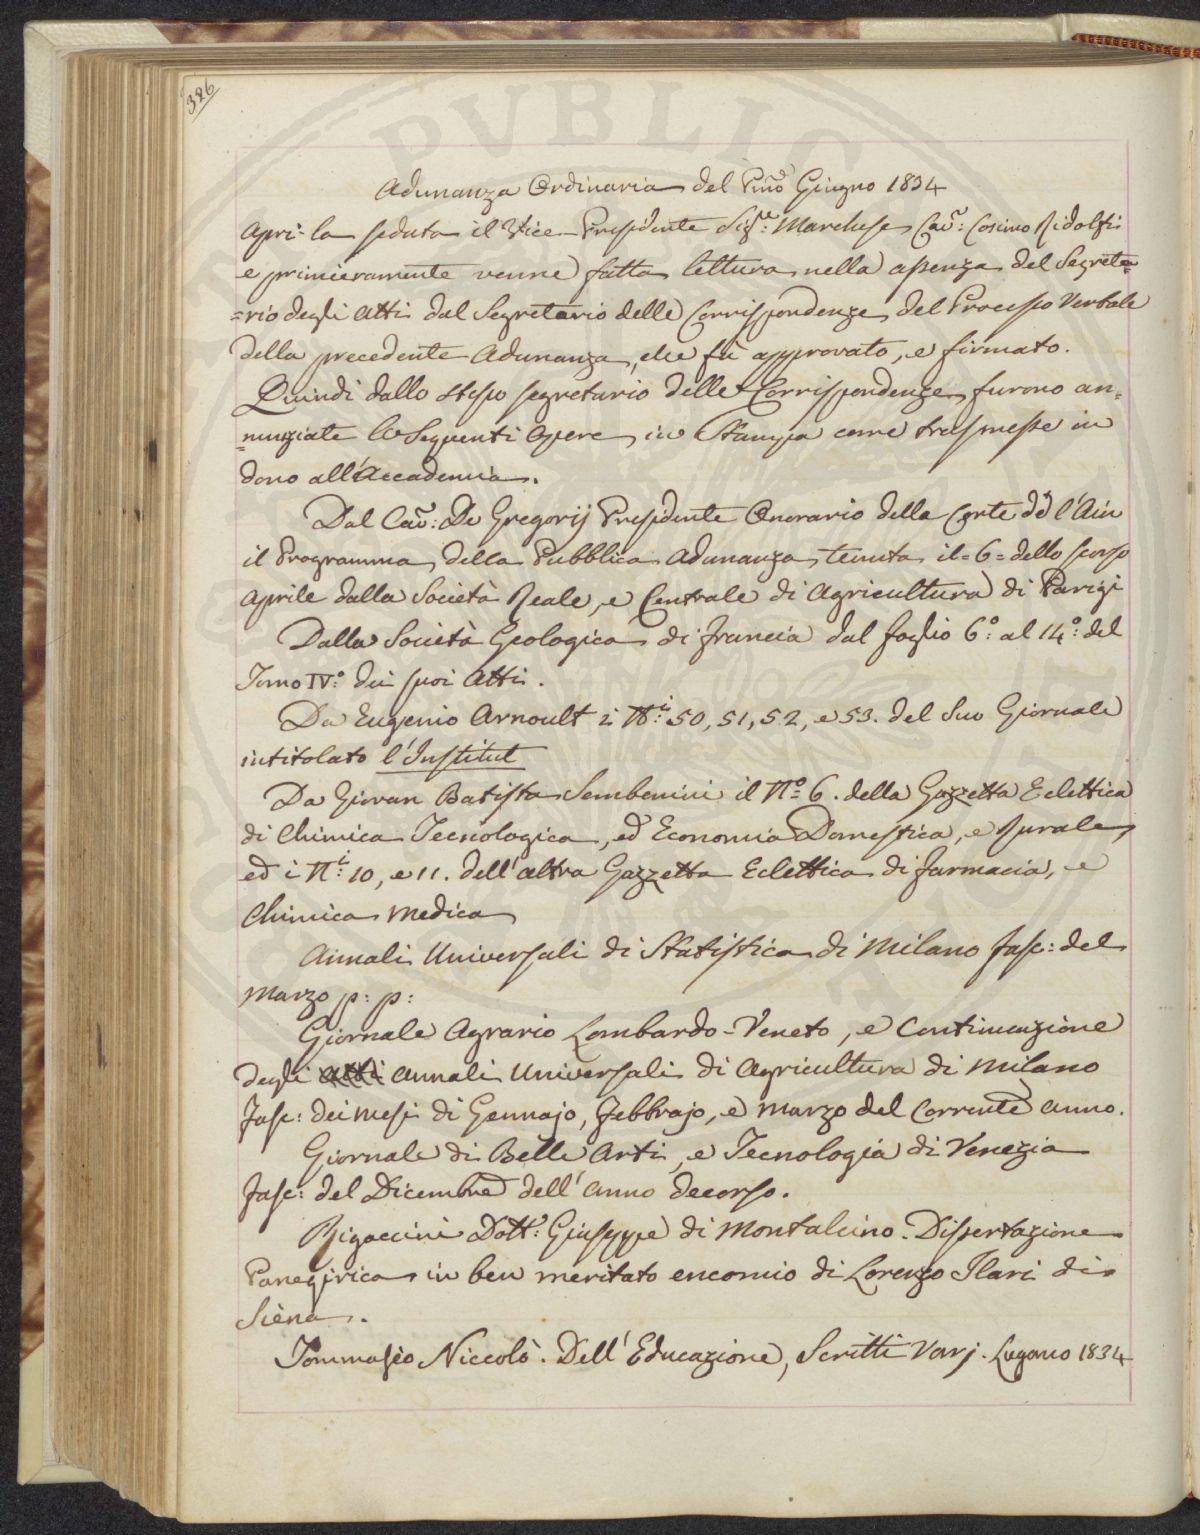 326
Adunanza Ordinaria del Pmo Giugno 1834
Aprì la seduta il Vice-Presidente Sigre: Marchese Cav: Cosimo Ridolfi
e primieramente venne fatta lettura nella assenza del Segreta=
=rio degli Atti dal Segretario delle Corrispondenze del Processo Verbale
della precedente Adunanza, che fù approvato, e firmato.
Quindi dallo stesso segretario delle Corrispondenze furono an=
=nunziate le Seguenti Opere in Stampa come trasmesse in
dono all'Accademia.
Dal Cav: De Gregorij Presidente Onorario della Corte d' l'Ain
il Programma della Pubblica Adunanza tenuta il=6=dello scorso
Aprile dalla Società Reale, e Centrale di Agricultura di Parigi
Dalla Società Geologica di Francia dal foglio 6°: al 14°: del
Tomo IV°: dei suoi Atti.
Da Eugenio Arnoult i Ni: 50, 51, 52, e 53. del Suo Giornale
intitolato l'Institut
Da Giovan Batista Sembenini il N° 6. della Gazzetta Eclettica
di Chimica Tecnologica, ed Economia Domestica, e Rurale,
ed i Ni: 10, e 11. dell'altra Gazzetta Eclettica di farmacia, e
Chimica Medica
Annali Universali di Statistica di Milano fasc: del
Marzo p: p:
Giornale Agrario Lombardo-Veneto, e Continuazione
degli Atti Annali Universali di Agricultura di Milano
Fasc: dei mesi di Gennajo, Febbrajo, e Marzo del corrente anno.
Giornale di Belle Arti, e Tecnologia di Venezia
fasc: del Dicembre dell'anno decorso.
Bigaccini Dott: Giuseppe di Montalcino. Dissertazione
Panegirica in ben meritato encomio di Lorenzo Ilari di
Siena.
Tommasèo Niccolò. Dell'Educazione, Scritti Varj. Lugano 1834